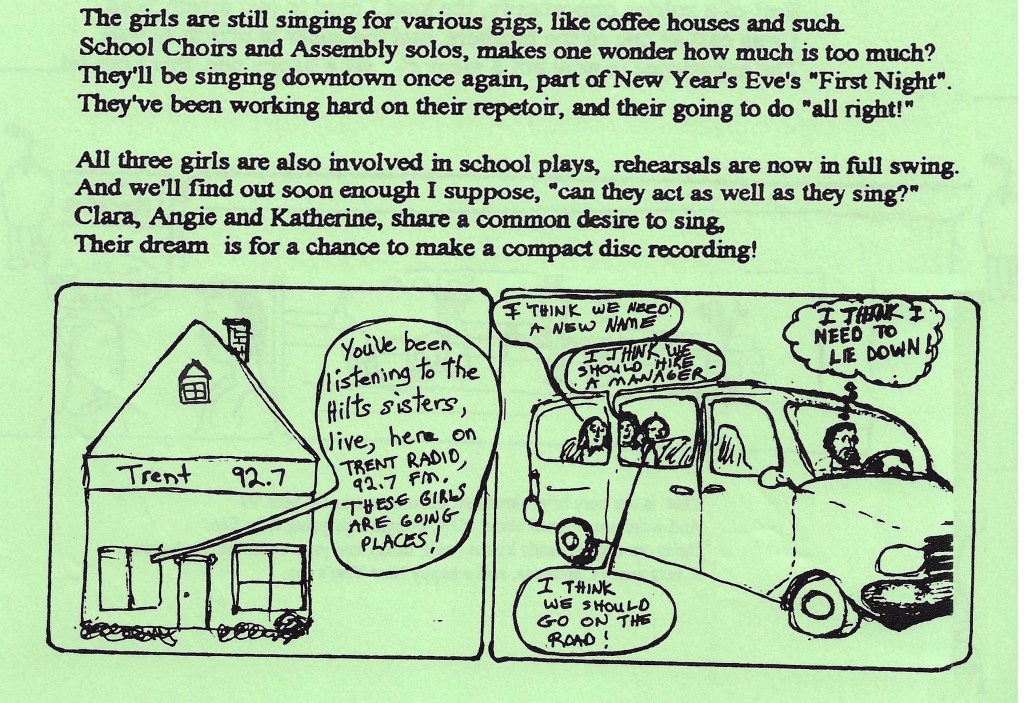 The girls are still singing for various gigs, like coffee houses and such.
School Choirs and Assembly solos, makes one wonder how much is too much?
They'll be singing downtown once again, part of New Year's Eve's "First Night".
They've been working hard on their repetoir, and their going to do "all right!"
All three girls are also involved in school plays, rehearsals are now in full swing.
And we'll find out soon enough I suppose, "can they act as well as they sing?"
Clara, Angie and Katherine, share a common desire to sing,
Their dream is for a chance to make a compact disc recording!
Trent 92.7
You've been
listening to the
Hilts sisters,
live, here on
TRENT RADIO,
92.7 FM.
THESE GIRLS
ARE GOING
PLACES!
I THINK WE NEED
A NEW NAME
I THINK WE
SHOULD HIRE
A MANAGER
I THINK I
NEED TO
LIE DOWN!
I THINK
WE SHOULD
GO ON THE
ROAD!